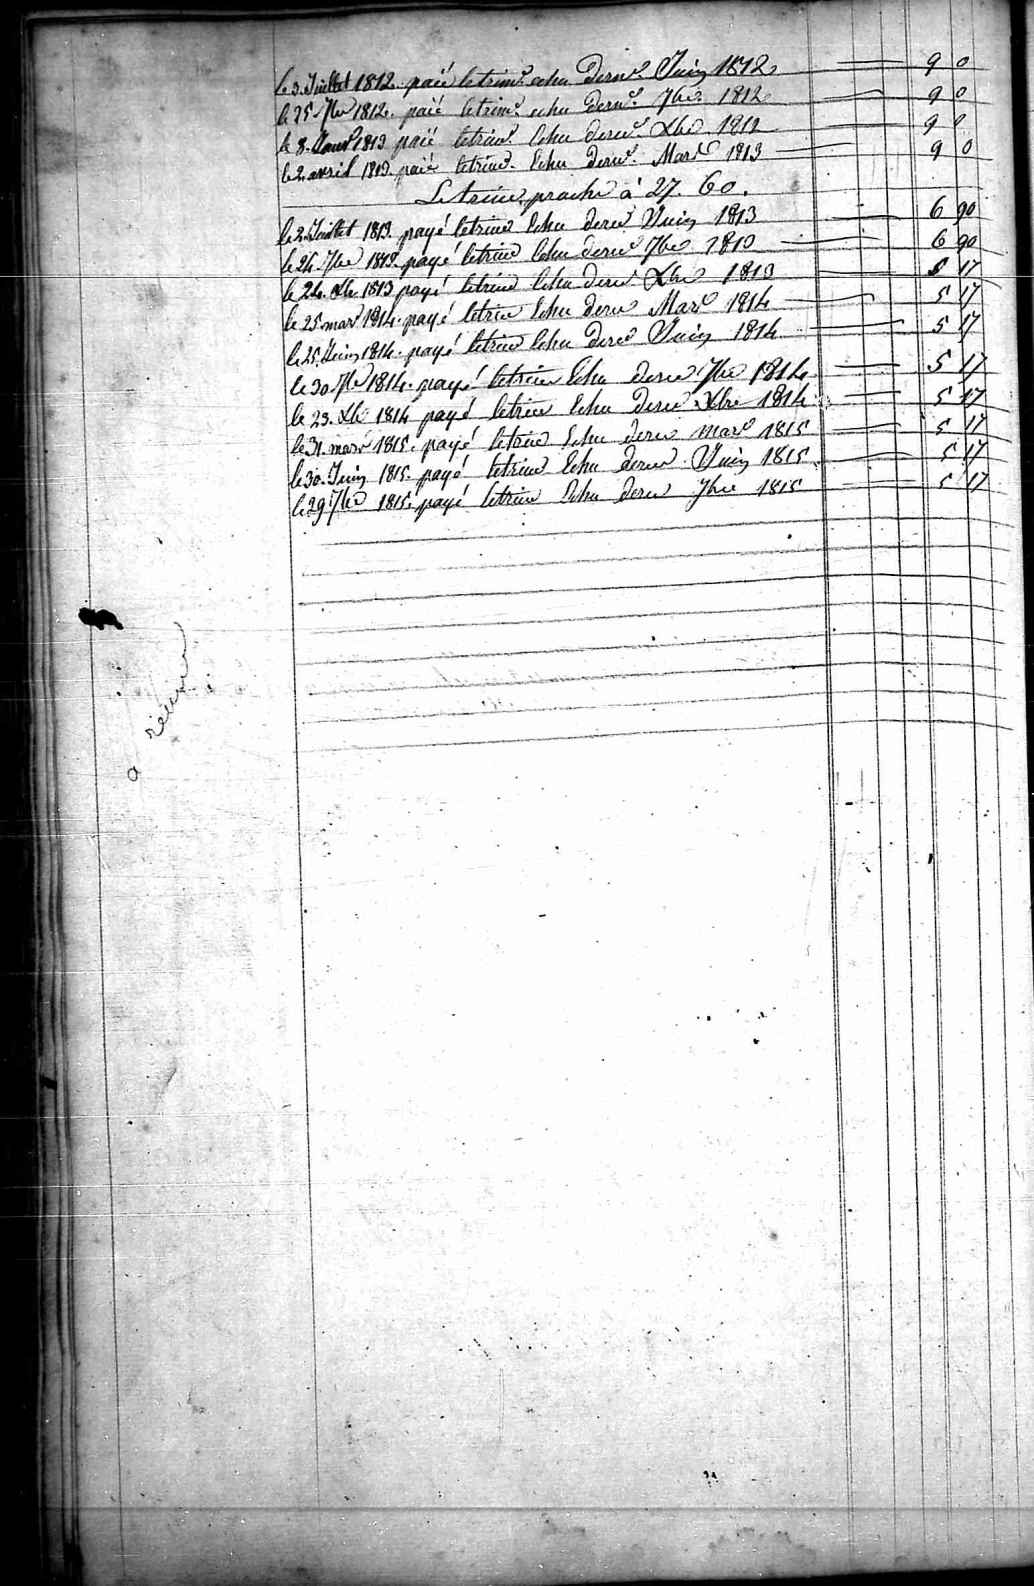 le 3. Juillet 1812. paié le trim.e echu dern.r Juin 1812 9 0
le 25. 7bre 1812. paié le trim.e echu dern.r 7bre 1812 9 0
le 8. Janv.r 1813 paié le trim.e Echu dern.r Xbre 1812 9 0
le 2. avril 1813. paié le trim.e Echu dern.r Mars 1813 9 0
à 27. 60.
le 2. Juillet 1813. payé le trim.e Echu dern.r Juin 1813 6 90
le 24. 7bre 1813. payé le trim.e Echu dern.r 7bre 1813 6 90
le 24. Xbre 1813 payé le trim.e Echu dern.r Xbre 1813 5 17
le 25 mars 1814. payé le trim.e Echu dern.r Mars 1814 5 17
le 25. Juin 1814. payé le trim.e Echu dern.r Juin 1814 5 17
le 30 7bre 1814. payé le trim.e Echu dern.r 7bre 1814 5 17
le 23. Xbre 1814 payé le trim.e Echu dern.r Xbre 1814 5 17
le 31. mars 1815. payé le trim.e Echu dern.r mars 1815 5 17
le 30. Juin 1815. payé le trim.e Echu dern.r Juin 1815 5 17
le 29 7bre 1815. payé le trim.e Echu dern.r 7bre 1815 5 17